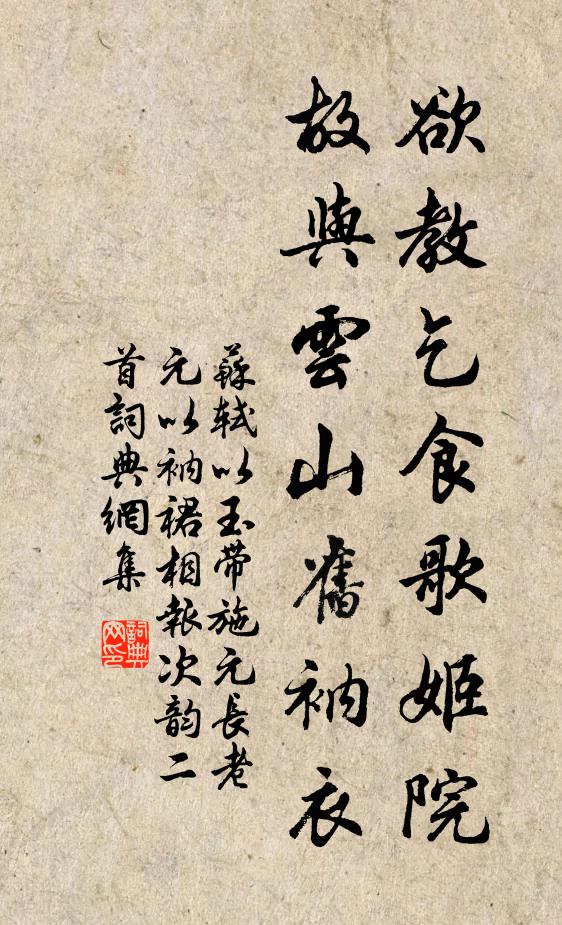 欲教乞食歌姬院
故與雲山舊衲衣
蘇軾以玉帶施元長老
元以衲裙相報次韵二
首詞典網集
詞典網印